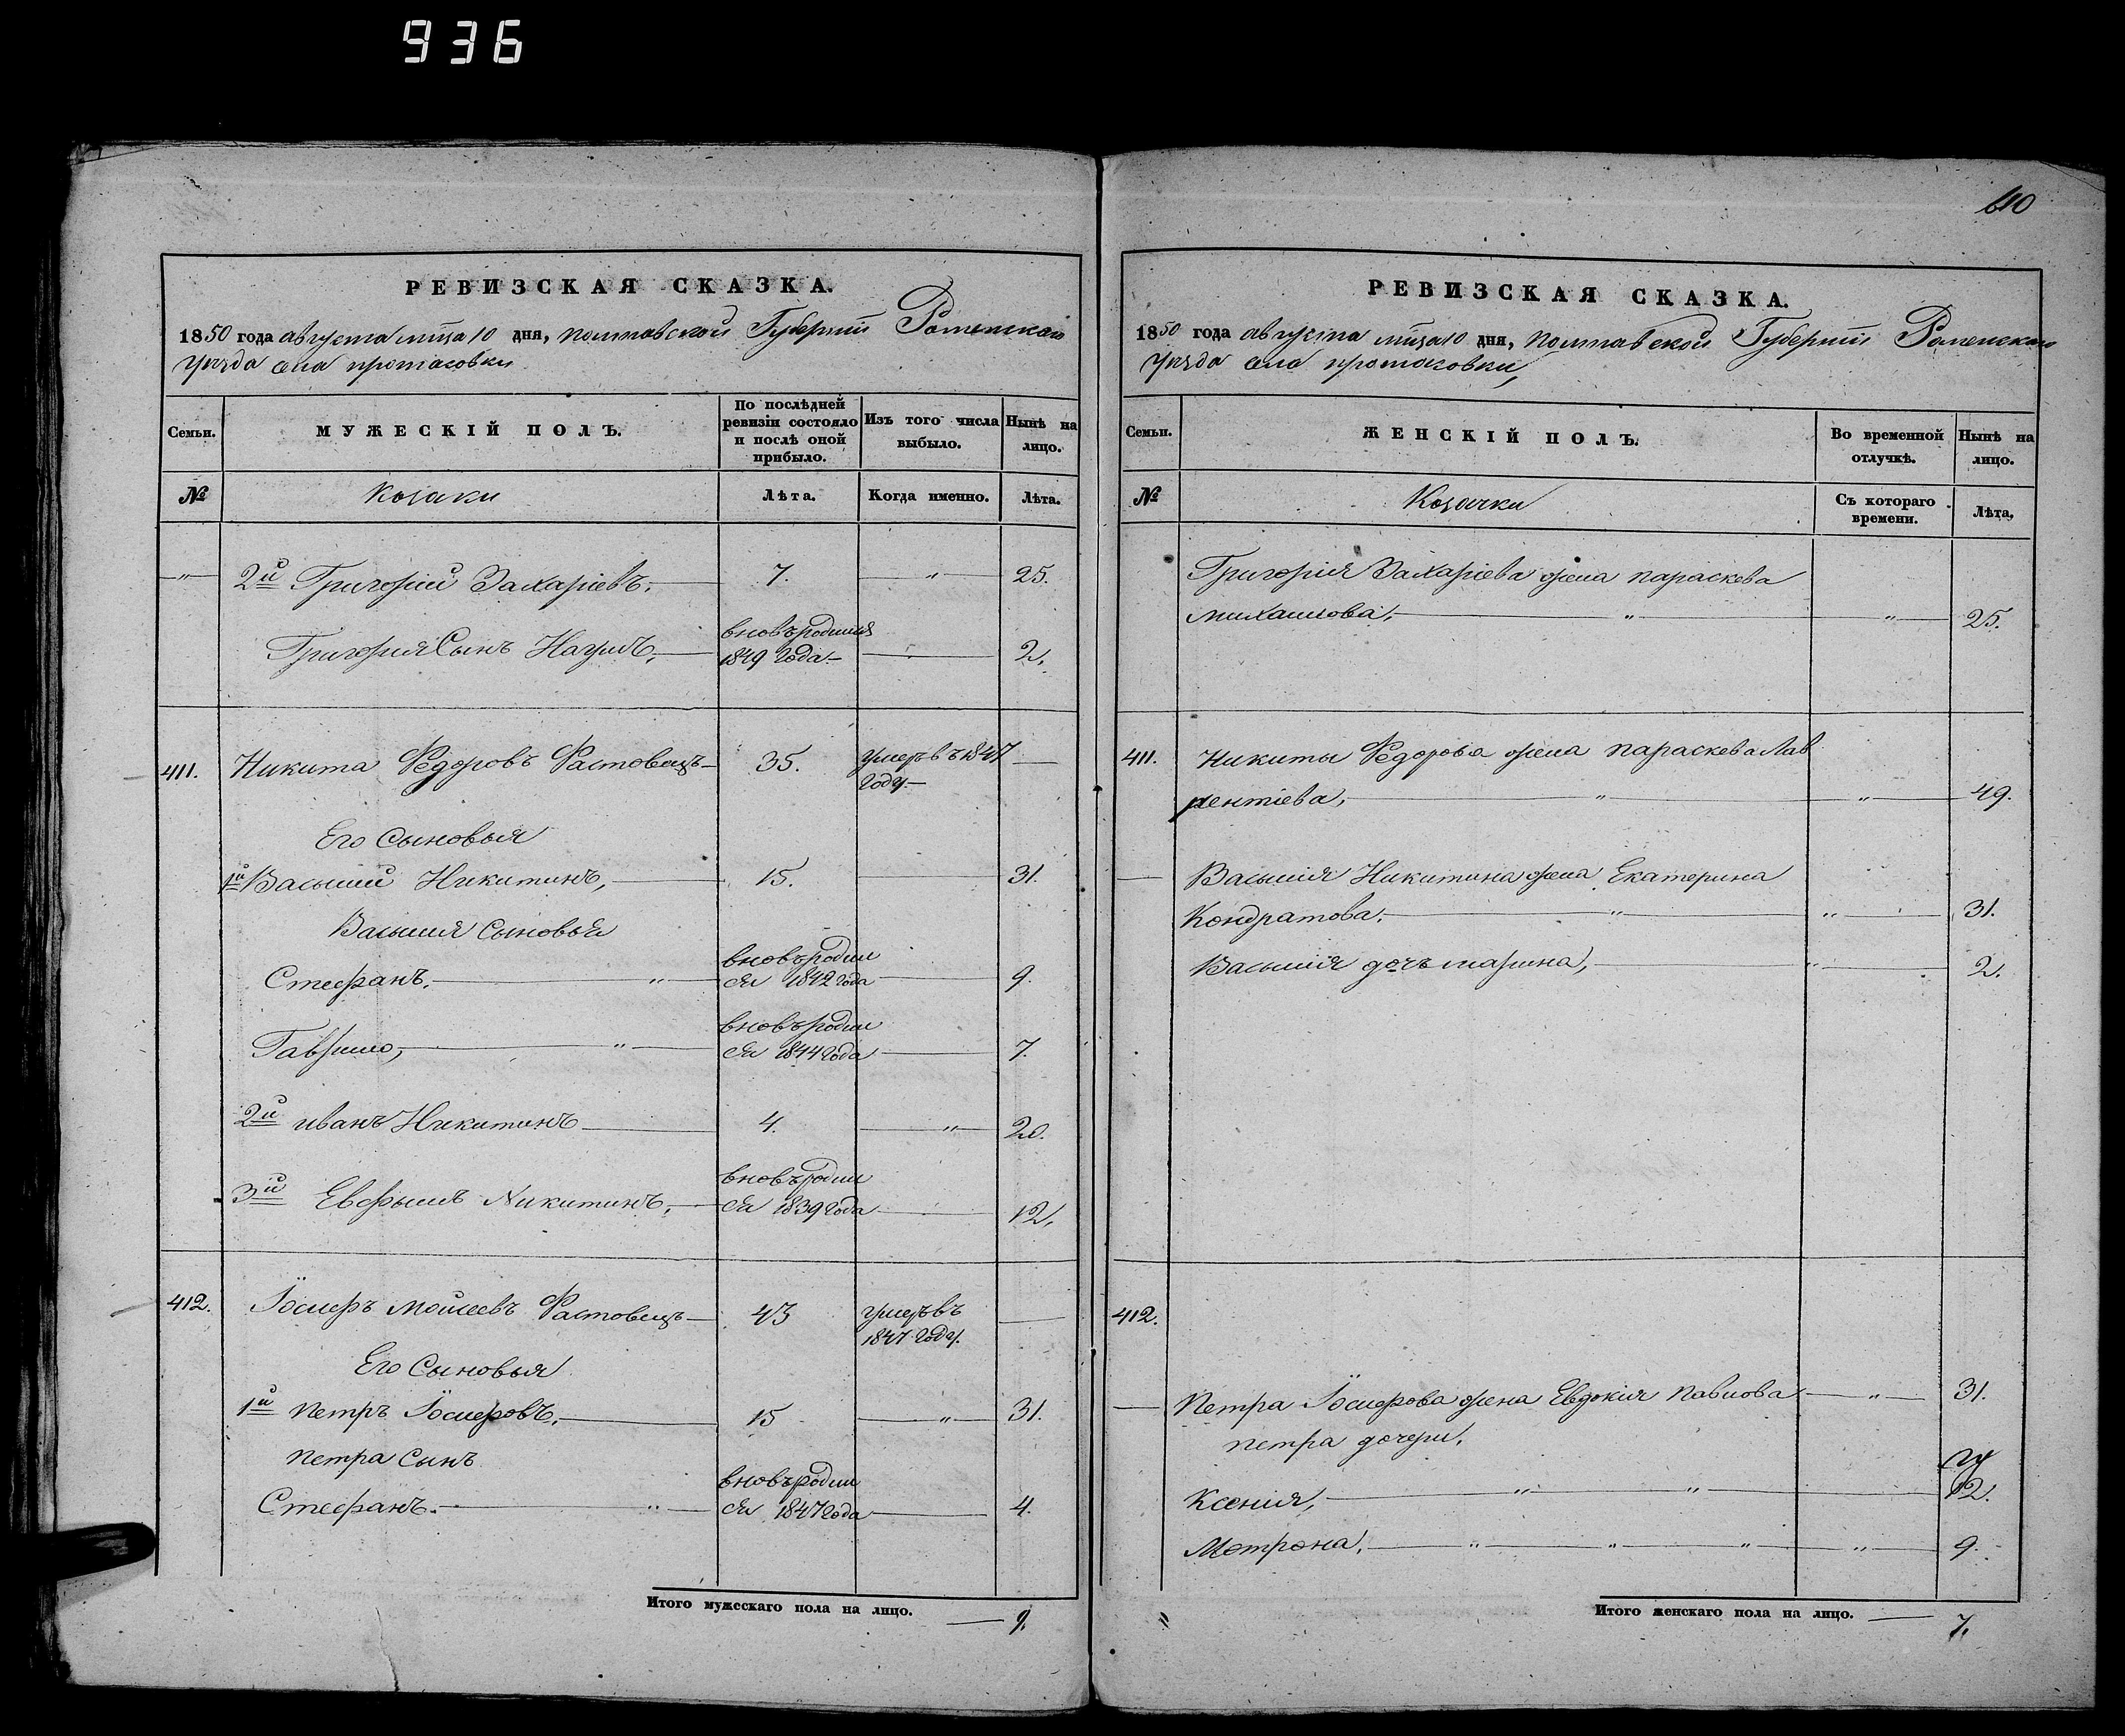 936
РЕВИЗСКАЯ СКАЗКА.
1850 года августа мѣсяца 10 дня, полтавской Губерніи Роменскаго
уѣзда села протасовки
Семьи.
МУЖЕСКІЙ ПОЛЪ.
По послѣдней ревизіи состояло и послѣ оной прибыло.
Изъ того числа выбыло.
Нынѣ на лицо.
№
Козаки
Лѣта.
Когда именно.
Лѣта.
—„— 2й Григорій Захаріевъ. 7. „ 25.
Григорія Сынъ Наумъ, вновьродился 1849 года 2.
411. Никита Федоровъ Растовецъ 35. умеръ въ 1847 году
Его Сыновья
1й Василий Никитинъ, 15. 31.
Василия Сыновья
Стефанъ. „ вновьродился 1842 года 9.
Гаврило, „ вновьродился 1844 года 7.
2й иванъ Никитинъ 4. „ 20.
3й Никитинъ, вновьродился 1839 года 12.
412. Іосифъ моисеевъ Растовецъ 43 умеръ въ 1847 году.
Его Сыновья
1й петръ Іосифовъ. 15 „ 31.
петра Сынъ
Стефанъ. „ вновьродился 1847 года 4.
Итого мужескаго пола на лицо. — 9.
410
РЕВИЗСКАЯ СКАЗКА.
1850 года августа мѣсяца 10 дня, полтавской Губерніи Роменскаго
уѣзда села протасовки,
Семьи.
ЖЕНСКІЙ ПОЛЪ.
Во временной отлучкѣ.
Нынѣ на лицо.
№
Козачки
Съ котораго времени.
Лѣта.
Григорія Захаріева жена параскева
михаилова, „ „ 25.
411. Никиты Федорова жена параскева Лав
рентіева, „ „ 49.
Василія Никитина жена Екатерина
Кондратова. „ „ 31.
Василія дочь марина, „ 2.
412.
Петра Іосифова жена Евдокія павлова „ 31.
петра дочери,
Ксенія, „ „ 12.
Мотрона, „ „ „ „ 9.
Итого женскаго пола на лицо. — 7.